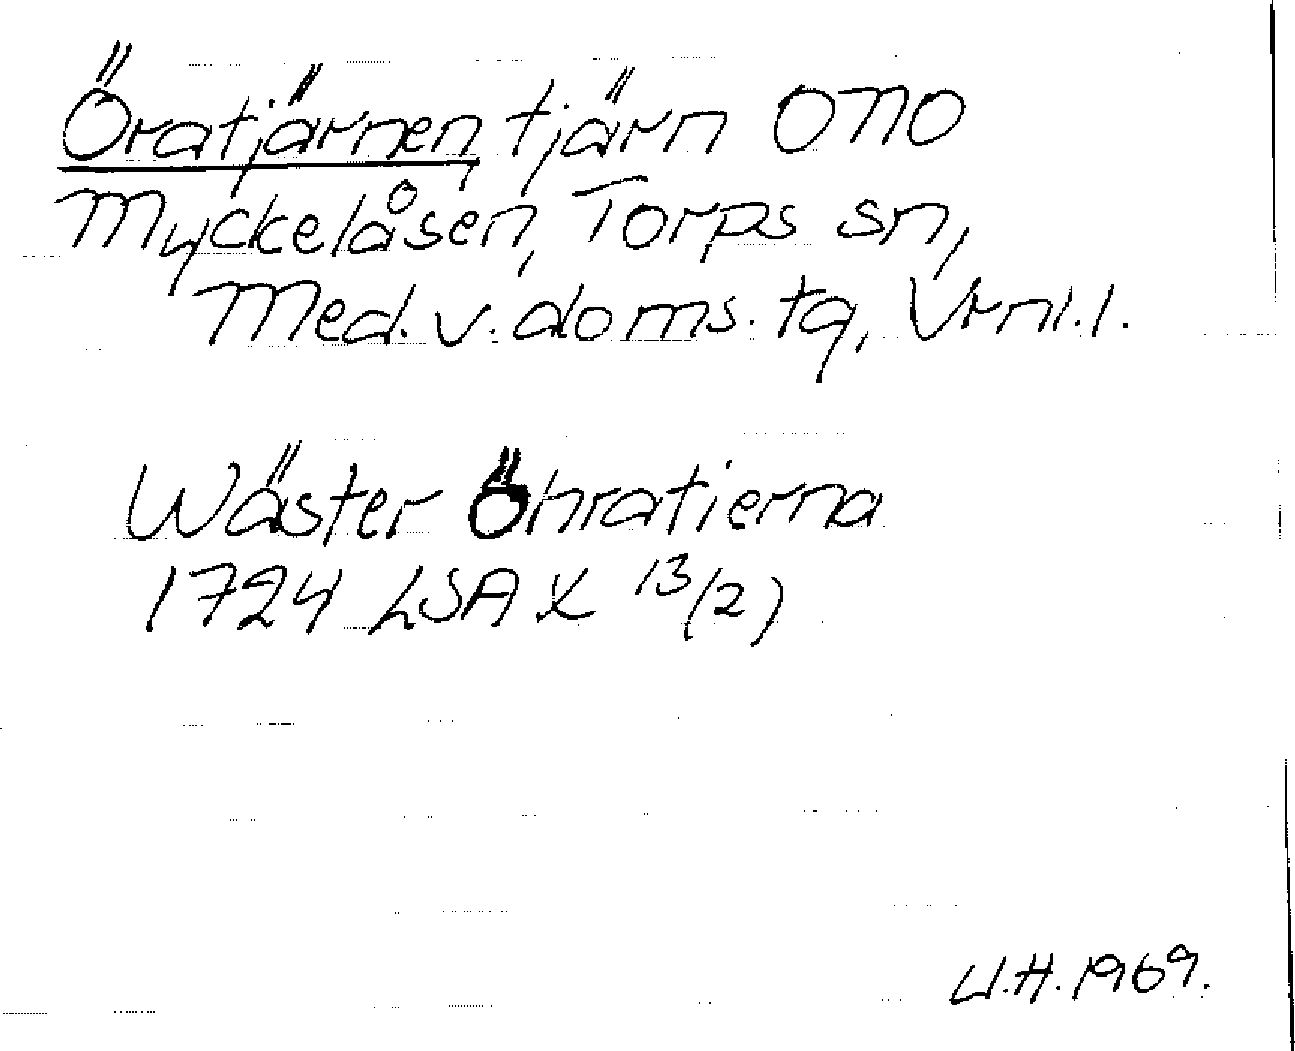 Öratjärnen, tjärn ONO
Myckelåsen, Torps sn,
Med. v. doms. tg, Vrnl.l.
Wäster Öhratierna
1724 LSA X 13/2)
U.H. 1969.